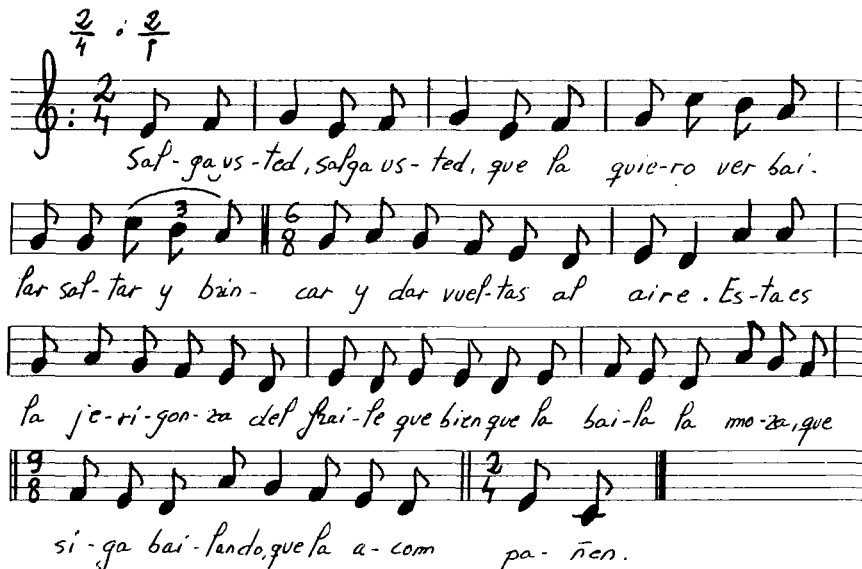 2/4 ó 2/8
2/4
Sal-ga us-ted, salga us-ted, que la quie-ro ver bai-
3 6/8
lar sal-tar y brin-car y dar vuel-tas al aire. Es-ta es
la je-ri-gon-za del frai-le que bien que la bai-la la mo-za, que
9/8 2/4
si-ga bai-lando, que la a-com pa-ñen.